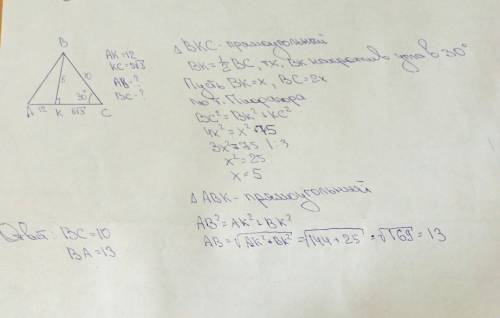 B
AK=12
KC=5√3
AB=?
BC=?
5
10
30°
A
12
K
5√3
C
Δ BKC - прямоугольний
BK=½ BC, т.к. BK напротив угла в 30°
Пусть BK=x, BC=2x
по т. Пифагора
BC²=BK²+KC²
4x²=x²+75
3x²=75 |:3
x²=25
x=5
Δ ABK - прямоугольний
AB²=AK²+BK²
AB=√AK²+BK² =√144+25 =√169 = 13
Ответ: BC=10
BA=13